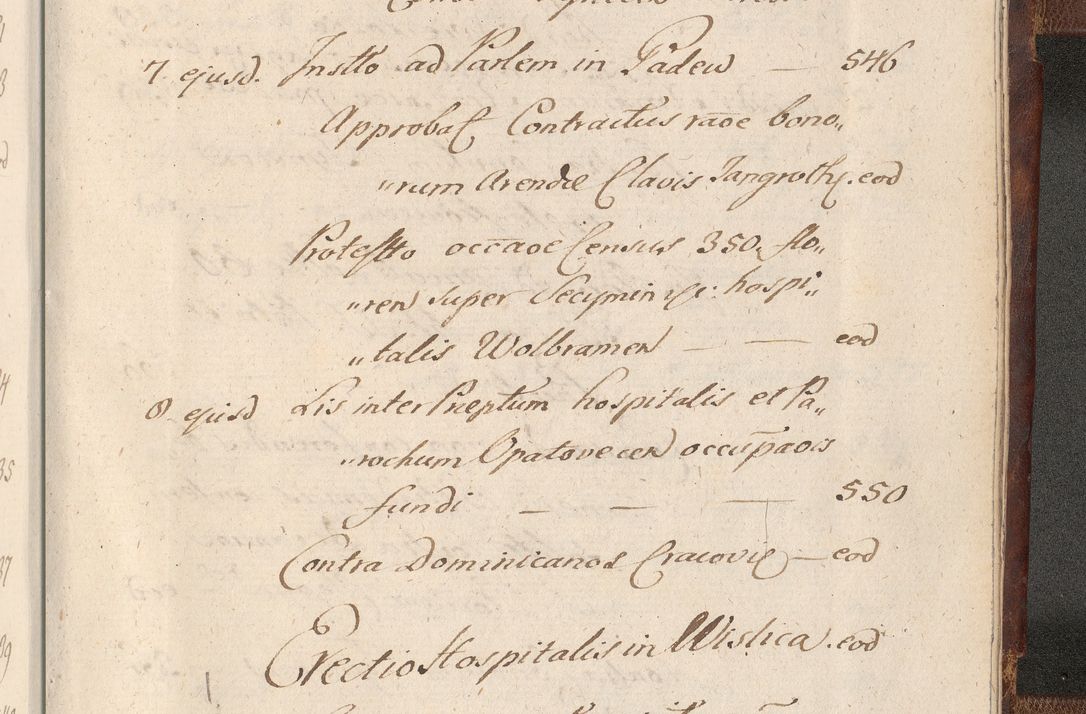 7. ejusd. Instto ad Parlem in Padew — 546
Approbaț Contractus raoe bono„
„rum Arendæ Clavis Jangrothȩ. eod
Protestto occaoe Census 350 flo„
„ren super Secymin hospi„
„talis Wolbramen — — eod
8 ejusd Lis inter Præptum hospitalis et Pa„
„rochum Opatovecen occupaois
fundi — — — 550
Contra Dominicanos Cracoviȩ — eod
Erectio Hospitalis in Wislica. eod